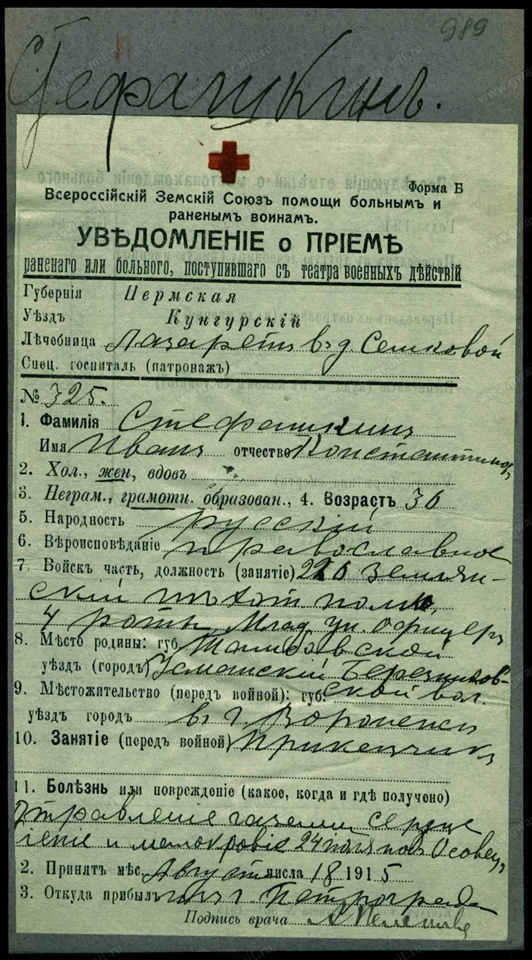 989
Стефашкинъ.
Форма Б
Всероссійскій Земскій Союзъ помощи больнымъ и
раненымъ воинамъ.
УВѢДОМЛЕНІЕ о ПРІЕМѢ
раненаго или больного, поступившаго съ театра военныхъ дѣйствій
Губернія Пермская
Уѣздъ Кунгурскій
Лѣчебница Лазаретъ в д. Семковой
Спец. госпиталь (патронажъ)
№ 325.
1. Фамилія Стефашкинъ
Имя Иванъ отчество Константинов
2. Хол., жен, вдов
3. Неграм., грамотн. образован., 4. Возрастъ 36
5. Народность русскій
6. Вѣроисповѣданіе православное
7. Войск. часть, должность (занятіе) 226 Землян-
скій пѣхот полк,
4 роты, Млад. ун. офицеръ
8. Мѣсто родины: губ. Тамбовской
уѣздъ (городъ) Усманскій Березников-
9. Мѣстожительство (передъ войной): губ. ской вол.
уѣздъ городъ в г. Воронежъ
10. Занятіе (передъ войной) Прикащикъ
11. Болѣзнь или поврежденіе (какое, когда и гдѣ получено)
отравленіе газами сердце
и малокровіе 24 под Осовец,
2. Принятъ мѣс. Августа числа 18 1915
3. Откуда прибылъ из г. Петрограда
Подпись врача